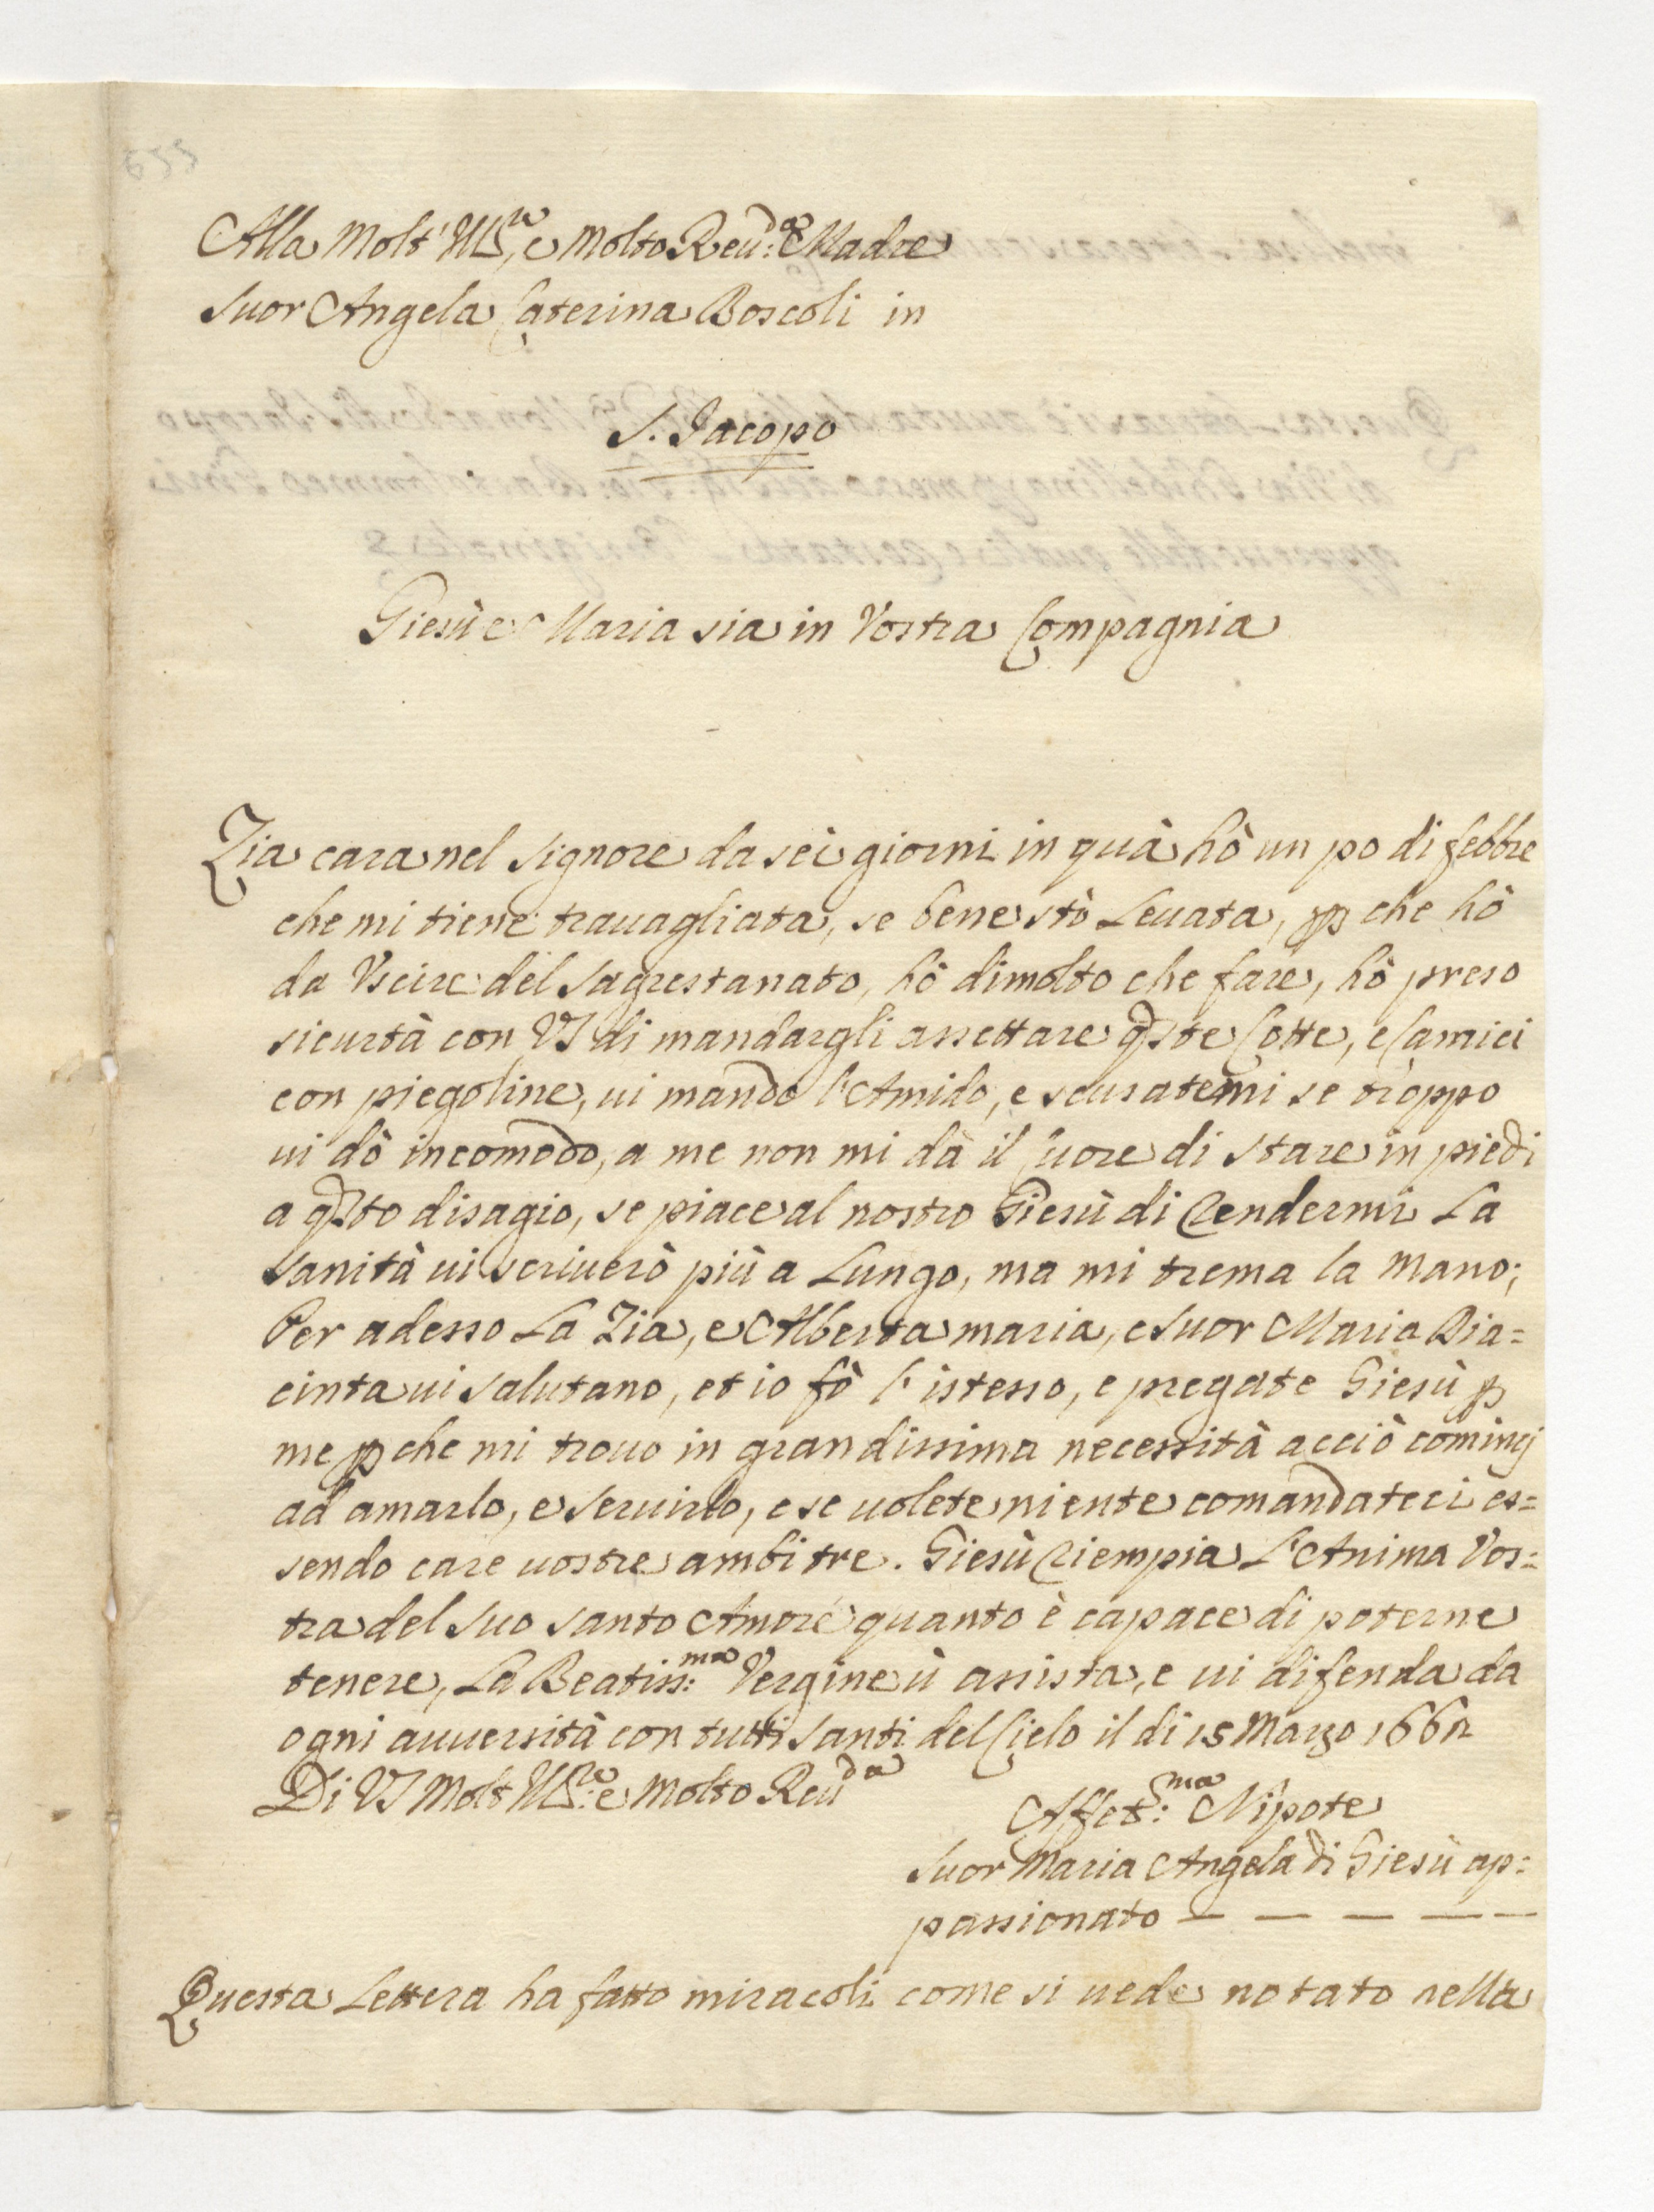 655
Alla Molt' Ill.re, e Molto Reu:da Madre
Suor Angela Caterina Boscoli in
S. Jacopo
Giesù e Maria sia in Vostra Compagnia
Zia cara nel Signore da sei giorni in quà hò un po di febbre
che mi tiene trauagliata, se bene stò Leuata, p che hò
da Vscire del Sagrestanato, hò dimolto che fare, hò preso
sicurtà con VS di mandargli assettare qste Cotte, e Camici
con piegoline, ui mando l'Amido, e scusatemi se troppo
ui dò incomodo, a me non mi dà il Cuore di stare in piedi
a qsto disagio, se piace al nostro Giesù di Rendermi La
Sanità ui scriuerò più a Lungo, ma mi trema la Mano;
Per adesso La Zia, e Alberta maria, e Suor Maria Dia=
cinta ui salutano, et io fò l'istesso, e pregate Giesù p
me p che mi trouo in grandissima necessità acciò cominci
ad amarlo, e seruirlo, e se uolete niente comandateci es=
sendo care uostre ambi tre. Giesù Riempia L'Anima Vos=
tra del suo santo Amore quanto è capace di poterne
tenere, La Beatiss:ma Vergine ui assista, e ui difenda da
ogni auuersità con tutti Santi del Cielo il di 15 Marzo 166
Di VS Molt Ill:re e Molto Reuda
Affet:ma Nipote
Suor Maria Angela di Giesù ap=
passionato — — — — —
Questa Lettera ha fatto miracoli come si uede notato nella